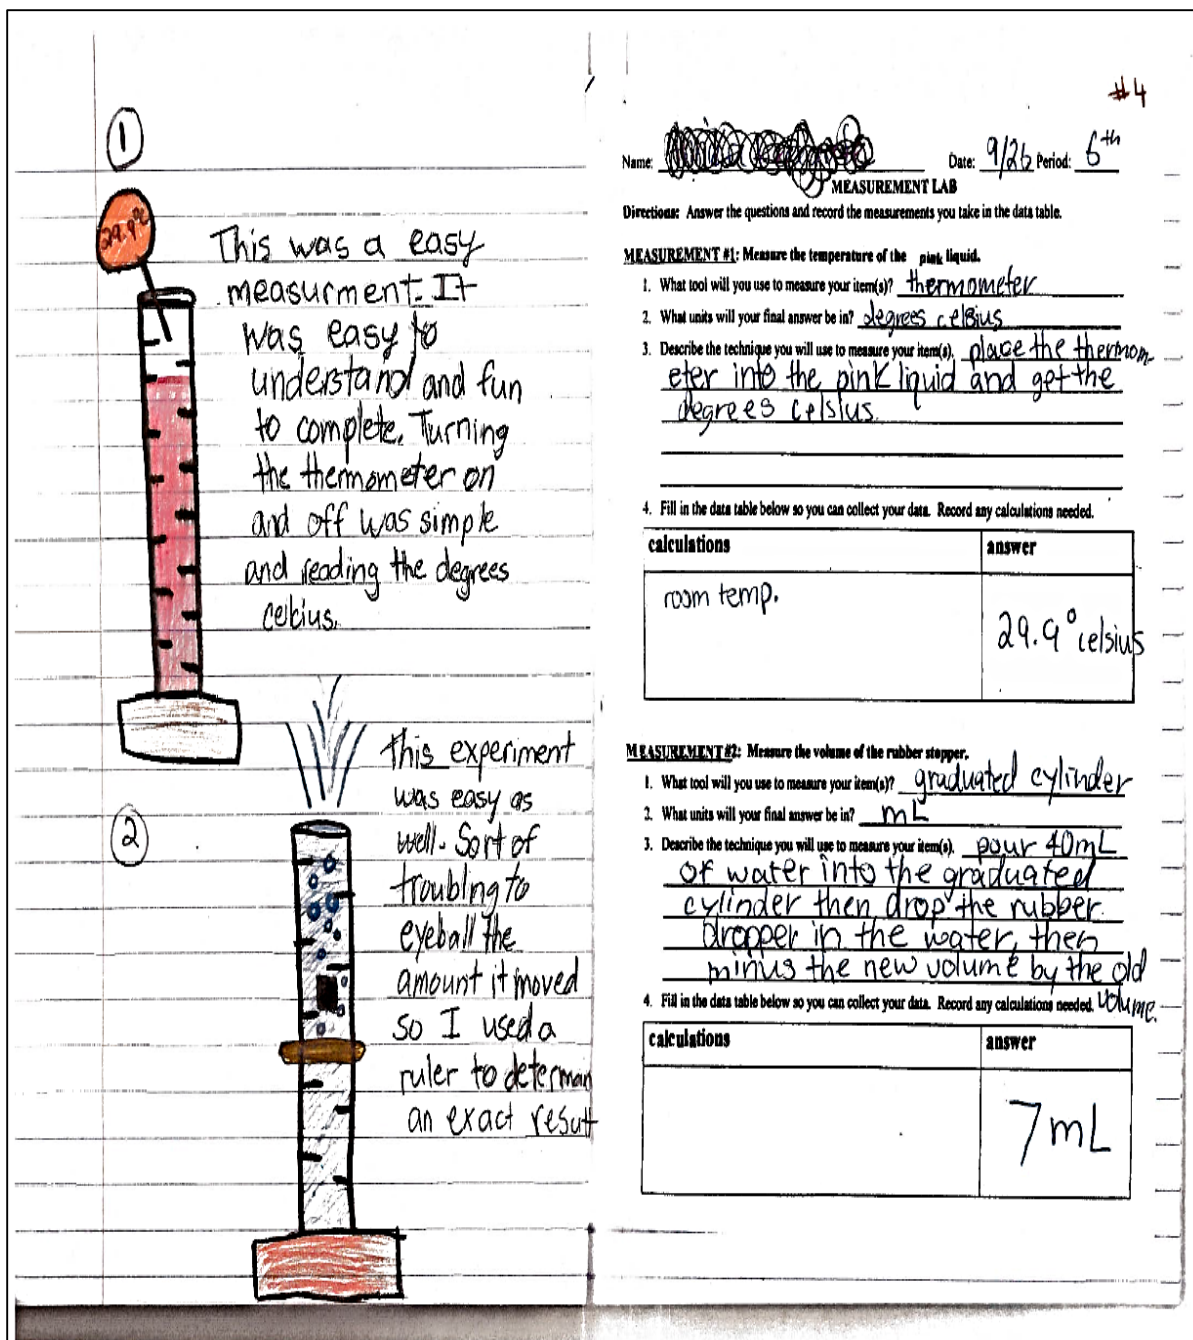 1
29.9°C
This was a easy
measurment. It
was easy to
understand and fun
to complete. Turning
the thermometer on
and off was simple
and reading the degrees
celcius.
2
This experiment
was easy as
well. Sort of
troubling to
eyeball the
amount it moved
so I used a
ruler to determan
an exact result
#4
Name: Date: 9/26 Period: 6th
MEASUREMENT LAB
Directions: Answer the questions and record the measurements you take in the data table.
MEASUREMENT #1: Measure the temperature of the pink liquid.
1. What tool will you use to measure your item(s)? thermometer
2. What units will your final answer be in? degrees celsius
3. Describe the technique you will use to measure your item(s). place the thermom-
eter into the pink liquid and get the
degrees celsius.
4. Fill in the data table below so you can collect your data. Record any calculations needed.
calculations answer
room temp.
29.9° celsius
MEASUREMENT #2: Measure the volume of the rubber stopper.
1. What tool will you use to measure your item(s)? graduated cylinder
2. What units will your final answer be in? mL
3. Describe the technique you will use to measure your item(s). pour 40mL
of water into the graduated
cylinder then drop the rubber
dropper in the water, then
minus the new volume by the old
volume.
4. Fill in the data table below so you can collect your data. Record any calculations needed.
calculations answer
7 mL